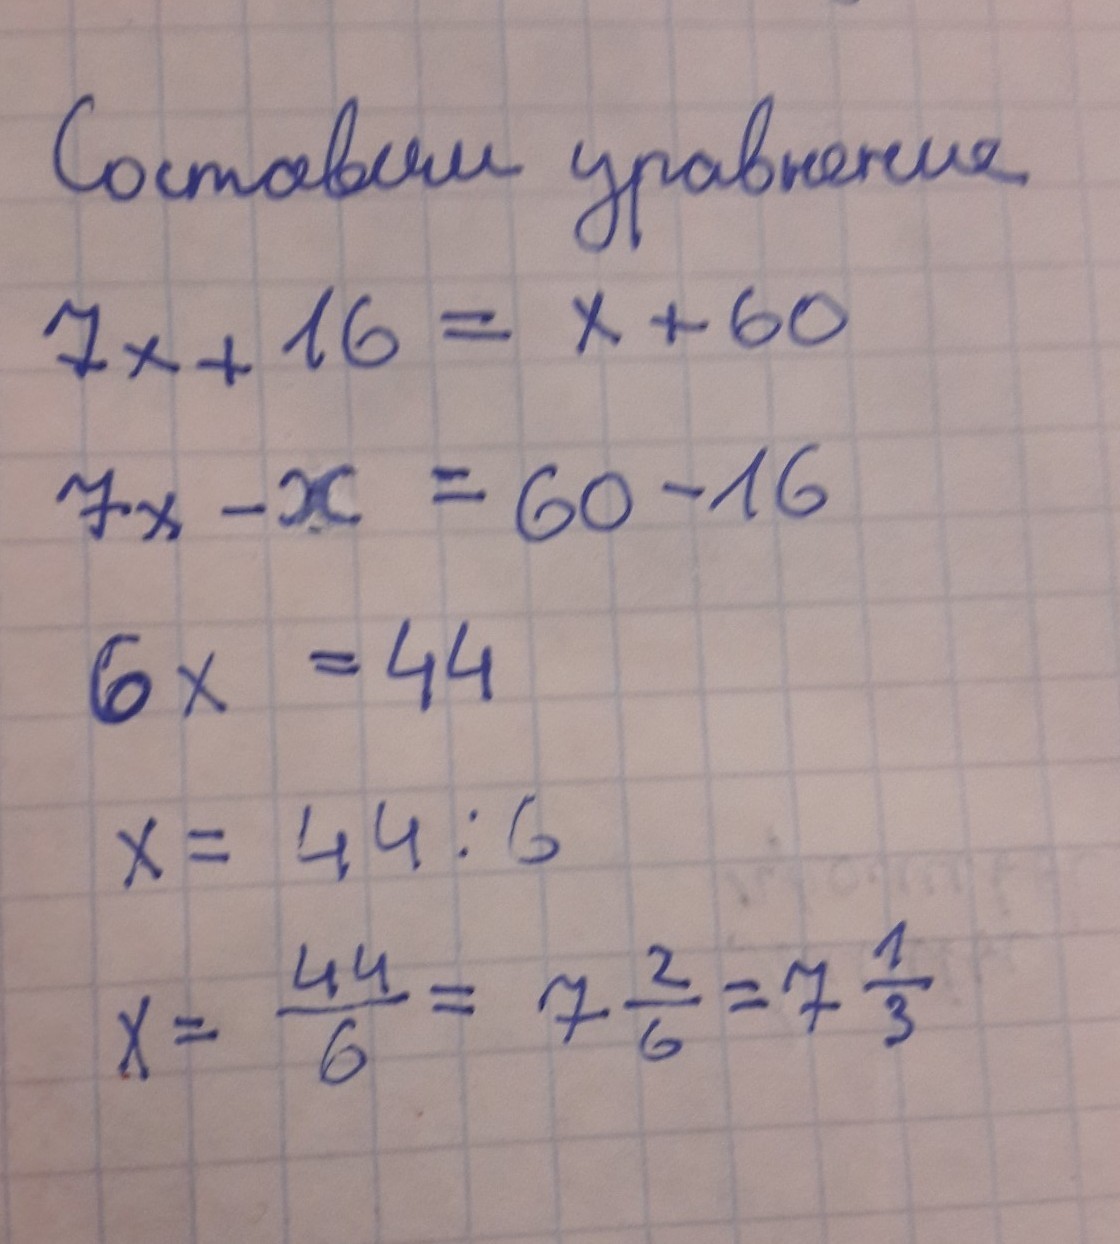 Составим уравнение
7x + 16 = x + 60
7x - x = 60 - 16
6x = 44
x = 44 : 6
x = 44/6 = 7 2/6 = 7 1/3